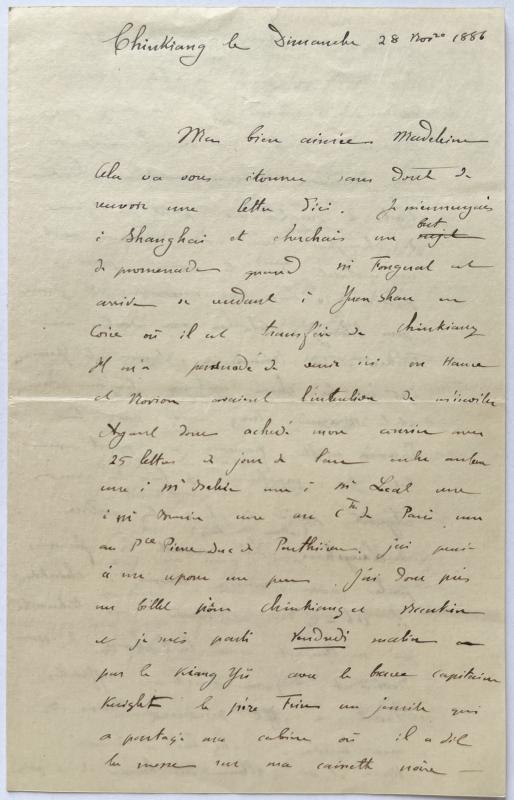 Chinkiang le Dimanche 28 Novre 1886
Ma bien aimée Madeleine
Cela va vous étonner sans doute de
recevoir une lettre d'ici. Je m'ennuyais
à Shanghai et cherchais un but
de promenade quand Mr est
arrivé se rendant à Yuen Shan en
Corée où il est transféré de Chinkiang
Il m'a persuadé de venir ici où
et avaient l'intention de m'inviter
Ayant donc achevé mon courrier avec
25 lettres le jour de l'an entre autres
une à Mr une à Mr une
à Mr une au Cte de Paris une
au Pce Pierre duc de Penthièvre. j'ai pensé
à me reposer un peu. J'ai donc pris
un billet pour Chinkiang et
et je suis parti Vendredi matin
par le Kiang Yü avec le brave capitaine
Knight le père un jesuite qui
a partagé ma cabine où il a dit
la messe sur ma caissette noire —